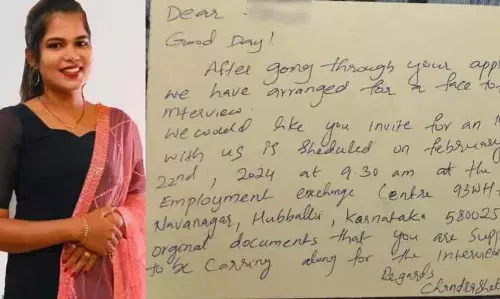 Dear
Good Day!
After gong through your app
we have arranged for a face to
Interview.
We would like you invite for an I
with us is Sheduled on february
22nd, 2024 at 9.30 am at the
Employment exchange Centre 93WH
Navanagar, Hubballi, Karnataka 580025
orgonal documents that you are Supp
to be Carring along for the Interview
Regards
Chandrashe